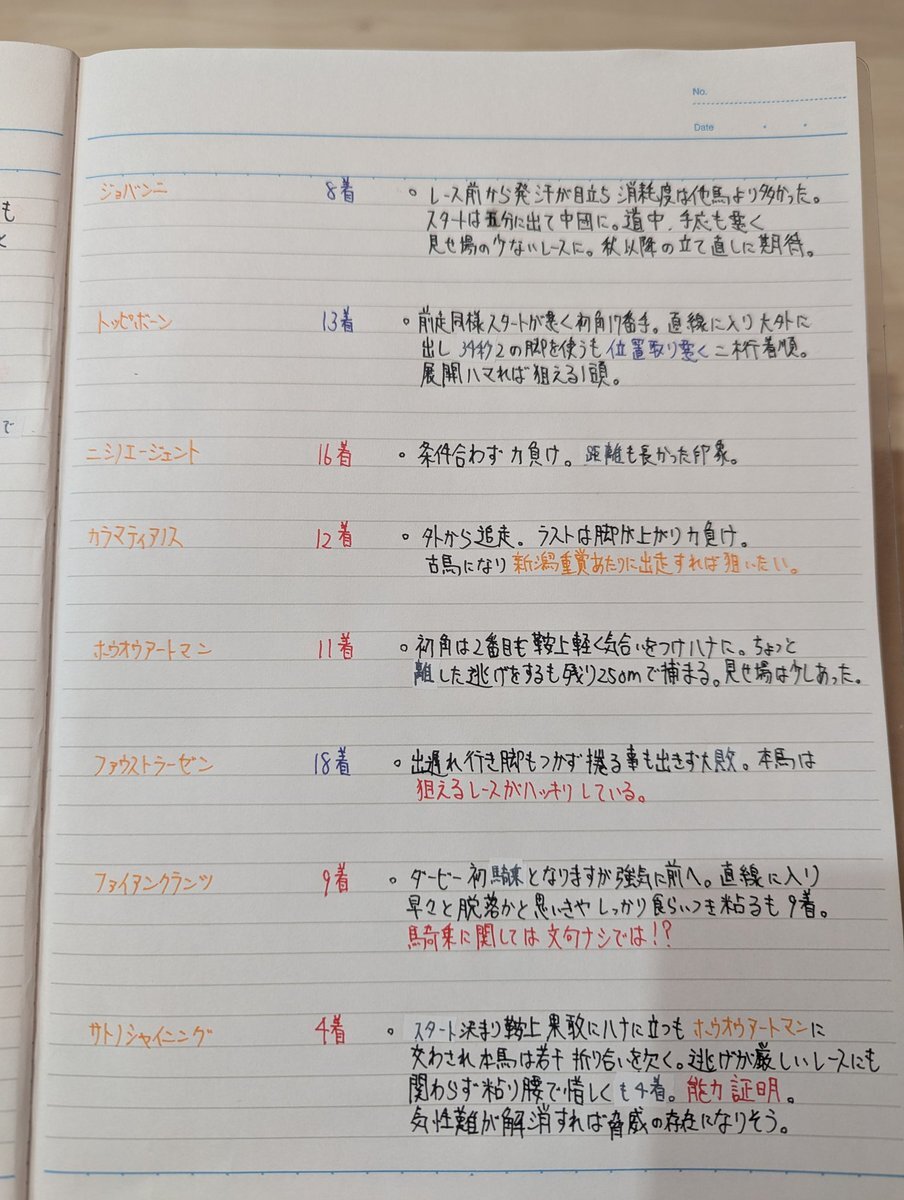 No.
Date
も
と
で
ジョバンニ 8着 ○ レース前から発汗が目立ち消耗度は他馬より多かった。
スタートは五分に出て中団に。道中、手応も悪く
見せ場の少ないレースに。秋以降の立て直しに期待。
トッピボーン 13着 ○ 前走同様スタートが悪く初角17番手。直線に入り大外に
出し34秒2の脚を使うも位置取り悪く二桁着順。
展開ハマれば狙える1頭。
ニシノエージェント 16着 ○ 条件合わず力負け。距離も長かった印象。
カラマティアノス 12着 ○ 外から追走。ラストは脚が上がり力負け。
古馬になり新潟重賞あたりに出走すれば狙いたい。
ホウオウアートマン 11着 ○ 初角は2番目も鞍上軽く気合いをつけハナに。ちょっと
離した逃げをするも残り250mで捕まる。見せ場は少しあった。
ファウストラーゼン 18着 ○ 出遅れ行き脚もつかず捲る事も出きず大敗。本馬は
狙えるレースがハッキリしている。
ファイアンクランツ 9着 ○ ダービー初騎乗となりますが強気に前へ。直線に入り
早々と脱落かと思いきやしっかり食らいつき粘るも9着。
騎乗に関しては文句ナシでは!?
サトノシャイニング 4着 ○ スタート決まり鞍上果敢にハナに立つもホウオウアートマンに
交わされ本馬は若干折り合いを欠く。逃げが厳しいレースにも
関わらず粘り腰で惜しくも4着。能力証明。
気性難が解消すれば脅威の存在になりそう。